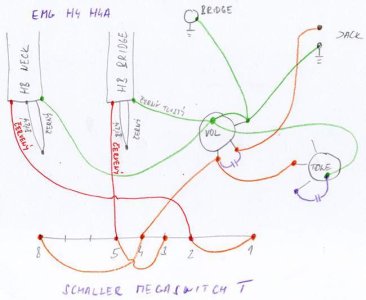 EMG H4 H4A
BRIDGE
JACK
HB NECK
HB BRIDGE
ČERNÝ TLUSTÝ
ČERVENÝ
BÍLÁ
ČERNÝ
ČERVENÝ
BÍLÁ
ČERNÝ
VOL
TONE
8
5
4
3
2
1
SCHALLER MEGASWITCH T